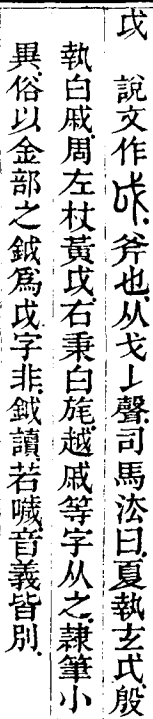 戉　說文作戉斧也从戈𠄌聲司馬法曰夏執玄戉殷
執白戚周左杖黃戉右秉白旄越戚等字从之隷筆小
異俗以金部之鉞爲戉字非鉞讀若噦音義皆別